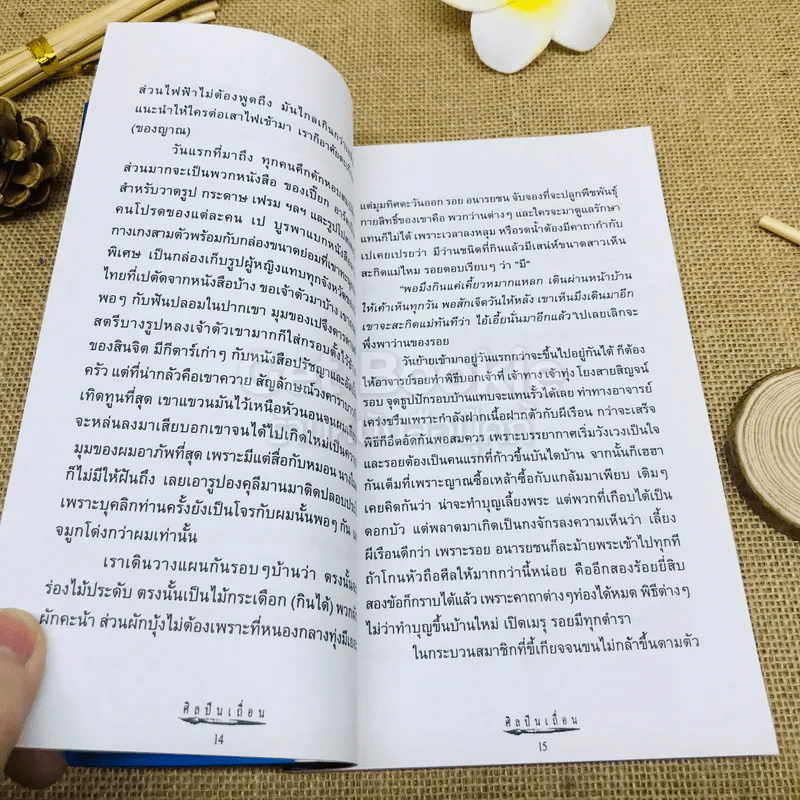 ส่วนไฟฟ้าไม่ต้องพูดถึง มันไกลเกินกว่า
แนะนำให้ใครต่อเสาไฟเข้ามา เราก็อาศัย
(ของญาณ)
วันแรกที่มาถึง ทุกคนคึกคัก
ส่วนมากจะเป็นพวกหนังสือ ของเปี๊ยก
สำหรับวาดรูป กระดาษ เฟรม ฯลฯ และรูป
คนโปรดของแต่ละคน เป บูรพาแบกหนังสือ
กางเกงสามตัวพร้อมกับกล่องขนาดย่อมที่เขา
พิเศษ เป็นกล่องเก็บรูปผู้หญิงแทบทุกจังหวัด
ไทยที่เปตัดจากหนังสือบ้าง ขอเจ้าตัวมาบ้าง
พอๆ กับฟันปลอมในปากเขา มุมของเปจึง
สตรีบางรูปหลงเจ้าตัวเขามากก็ใส่กรอบตั้งไว้
ของสินจิต มีกีตาร์เก่าๆ กับหนังสือปรัชญาและ
ครัว แต่ที่น่ากลัวคือเขาควาย สัญลักษณ์วงคาราบาว
เทิดทูนที่สุด เขาแขวนมันไว้เหนือหัวนอนจน
จะหล่นลงมาเสียบอกเขาจนได้ไปเกิดใหม่เป็น
มุมของผมอาภัพที่สุด เพราะมีแต่สื่อกับหมอน
ก็ไม่มีให้ฝันถึง เลยเอารูปองคุลีมานมาติดปลอบ
เพราะบุคลิกท่านครั้งยังเป็นโจรกับผมนั้นพอๆ กัน
จมูกโด่งกว่าผมเท่านั้น
เราเดินวางแผนกันรอบๆบ้านว่า ตรงนั้น
ร่องไม้ประดับ ตรงนั้นเป็นไม้กระเดือก (กินได้) พวก
ผักคะน้า ส่วนผักบุ้งไม่ต้องเพราะที่หนองกลางทุ่งมี
ศิลปินเถื่อน
14
แต่มุมทิศตะวันออก รอย อนารยชน จับจองที่จะปลูกพืชพันธุ์
กายสิทธิ์ของเขาคือ พวกว่านต่างๆ และใครจะมาดูแลรักษา
แทนก็ไม่ได้ เพราะเวลาลงหลุม หรือรดน้ำต้องมีคาถากำกับ
เปเคยเปรยว่า มีว่านชนิดที่กินแล้วมีเสน่ห์ขนาดสาวเห็น
สะกิดแม่ไหม รอยตอบเรียบๆ ว่า "มี"
"พอมึงกินแค่เคี้ยวหมากแหลก เดินผ่านหน้าบ้าน
ให้เค้าเห็นทุกวัน พอสักเจ็ดวันให้หลัง เขาเห็นมึงเดินมาอีก
เขาจะสะกิดแม่ทันทีว่า ไอ้เอี้ยนั่นมาอีกแล้ว"เปเลยเลิกจะ
พึ่งพาว่านของรอย
วันย้ายเข้ามาอยู่วันแรกกว่าจะขึ้นไปอยู่กันได้ ก็ต้อง
ให้อาจารย์รอยทำพิธีบอกเจ้าที่ เจ้าทาง เจ้าทุ่ง โยงสายสิญจน์
รอบ จุดธูปปักรอบบ้านแทบจะแทนรั้วได้เลย ท่าทางอาจารย์
เคร่งขรึมเพราะกำลังฝากเนื้อฝากตัวกับผีเรือน กว่าจะเสร็จ
พิธีก็อึดอัดกันพอสมควร เพราะบรรยากาศเริ่มวังเวงเป็นใจ
และรอยต้องเป็นคนแรกที่ก้าวขึ้นบันไดบ้าน จากนั้นก็เฮฮา
กันเต็มที่เพราะญาณซื้อเหล้าซื้อกับแกล้มมาเพียบ เดิมๆ
เคยคิดกันว่า น่าจะทำบุญเลี้ยงพระ แต่พวกที่เกือบได้เป็น
ดอกบัว แต่พลาดมาเกิดเป็นกงจักรลงความเห็นว่า เลี้ยง
ผีเรือนดีกว่า เพราะรอย อนารยชนก็ละม้ายพระเข้าไปทุกที
ถ้าโกนหัวถือศีลให้มากกว่านี้หน่อย คืออีกสองร้อยยี่สิบ
สองข้อก็กราบได้แล้ว เพราะคาถาต่างๆท่องได้หมด พิธีต่างๆ
ไม่ว่าทำบุญขึ้นบ้านใหม่ เปิดเมรุ รอยมีทุกตำรา
ในกระบวนสมาชิกที่ขี้เกียจจนขนไม่กล้าขึ้นตามตัว
ศิลปินเถื่อน
15